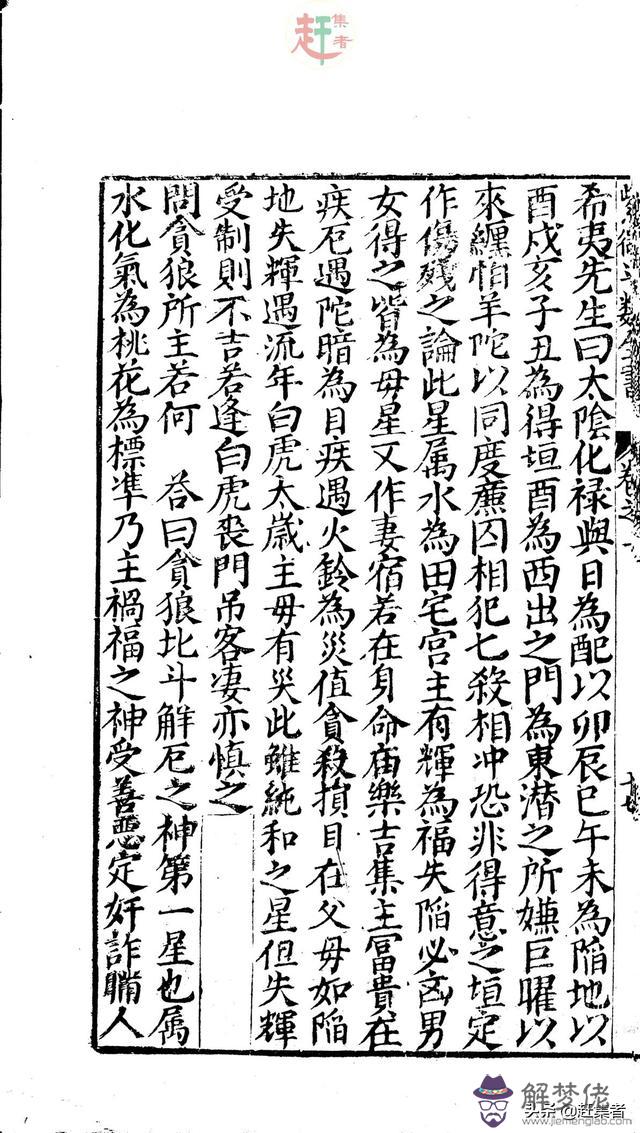 集者
赶
希夷先生曰太陰化禄與日為配以卯辰巳午未為陷地以
酉戍亥子丑為得垣酉為西出之門為東潜之所嫌巨曜以
來纒怕羊陀以同度㢘囚相犯七殺相冲恐非得意之垣定
作傷殘之論此星属水為田宅宫主有輝為福失陷必㐫男
女得之皆為毋星又作妻宿若在身命庙樂吉集主富貴在
疾厄遇陀暗為目疾遇火鈴為災值貪殺損目在父毋如陷
地失輝遇流年白虎太歲主毋有災此雖純和之星但失輝
受制則不吉若逢白虎喪門吊客凄亦慎之
問貪狼所主若何 荅曰貪狼北斗解厄之神第一星也属
水化氣為桃花為標凖乃主禍福之神受善惡定奸詐瞞人
解梦佬
www.jiemenglao.com
头条@赶集者